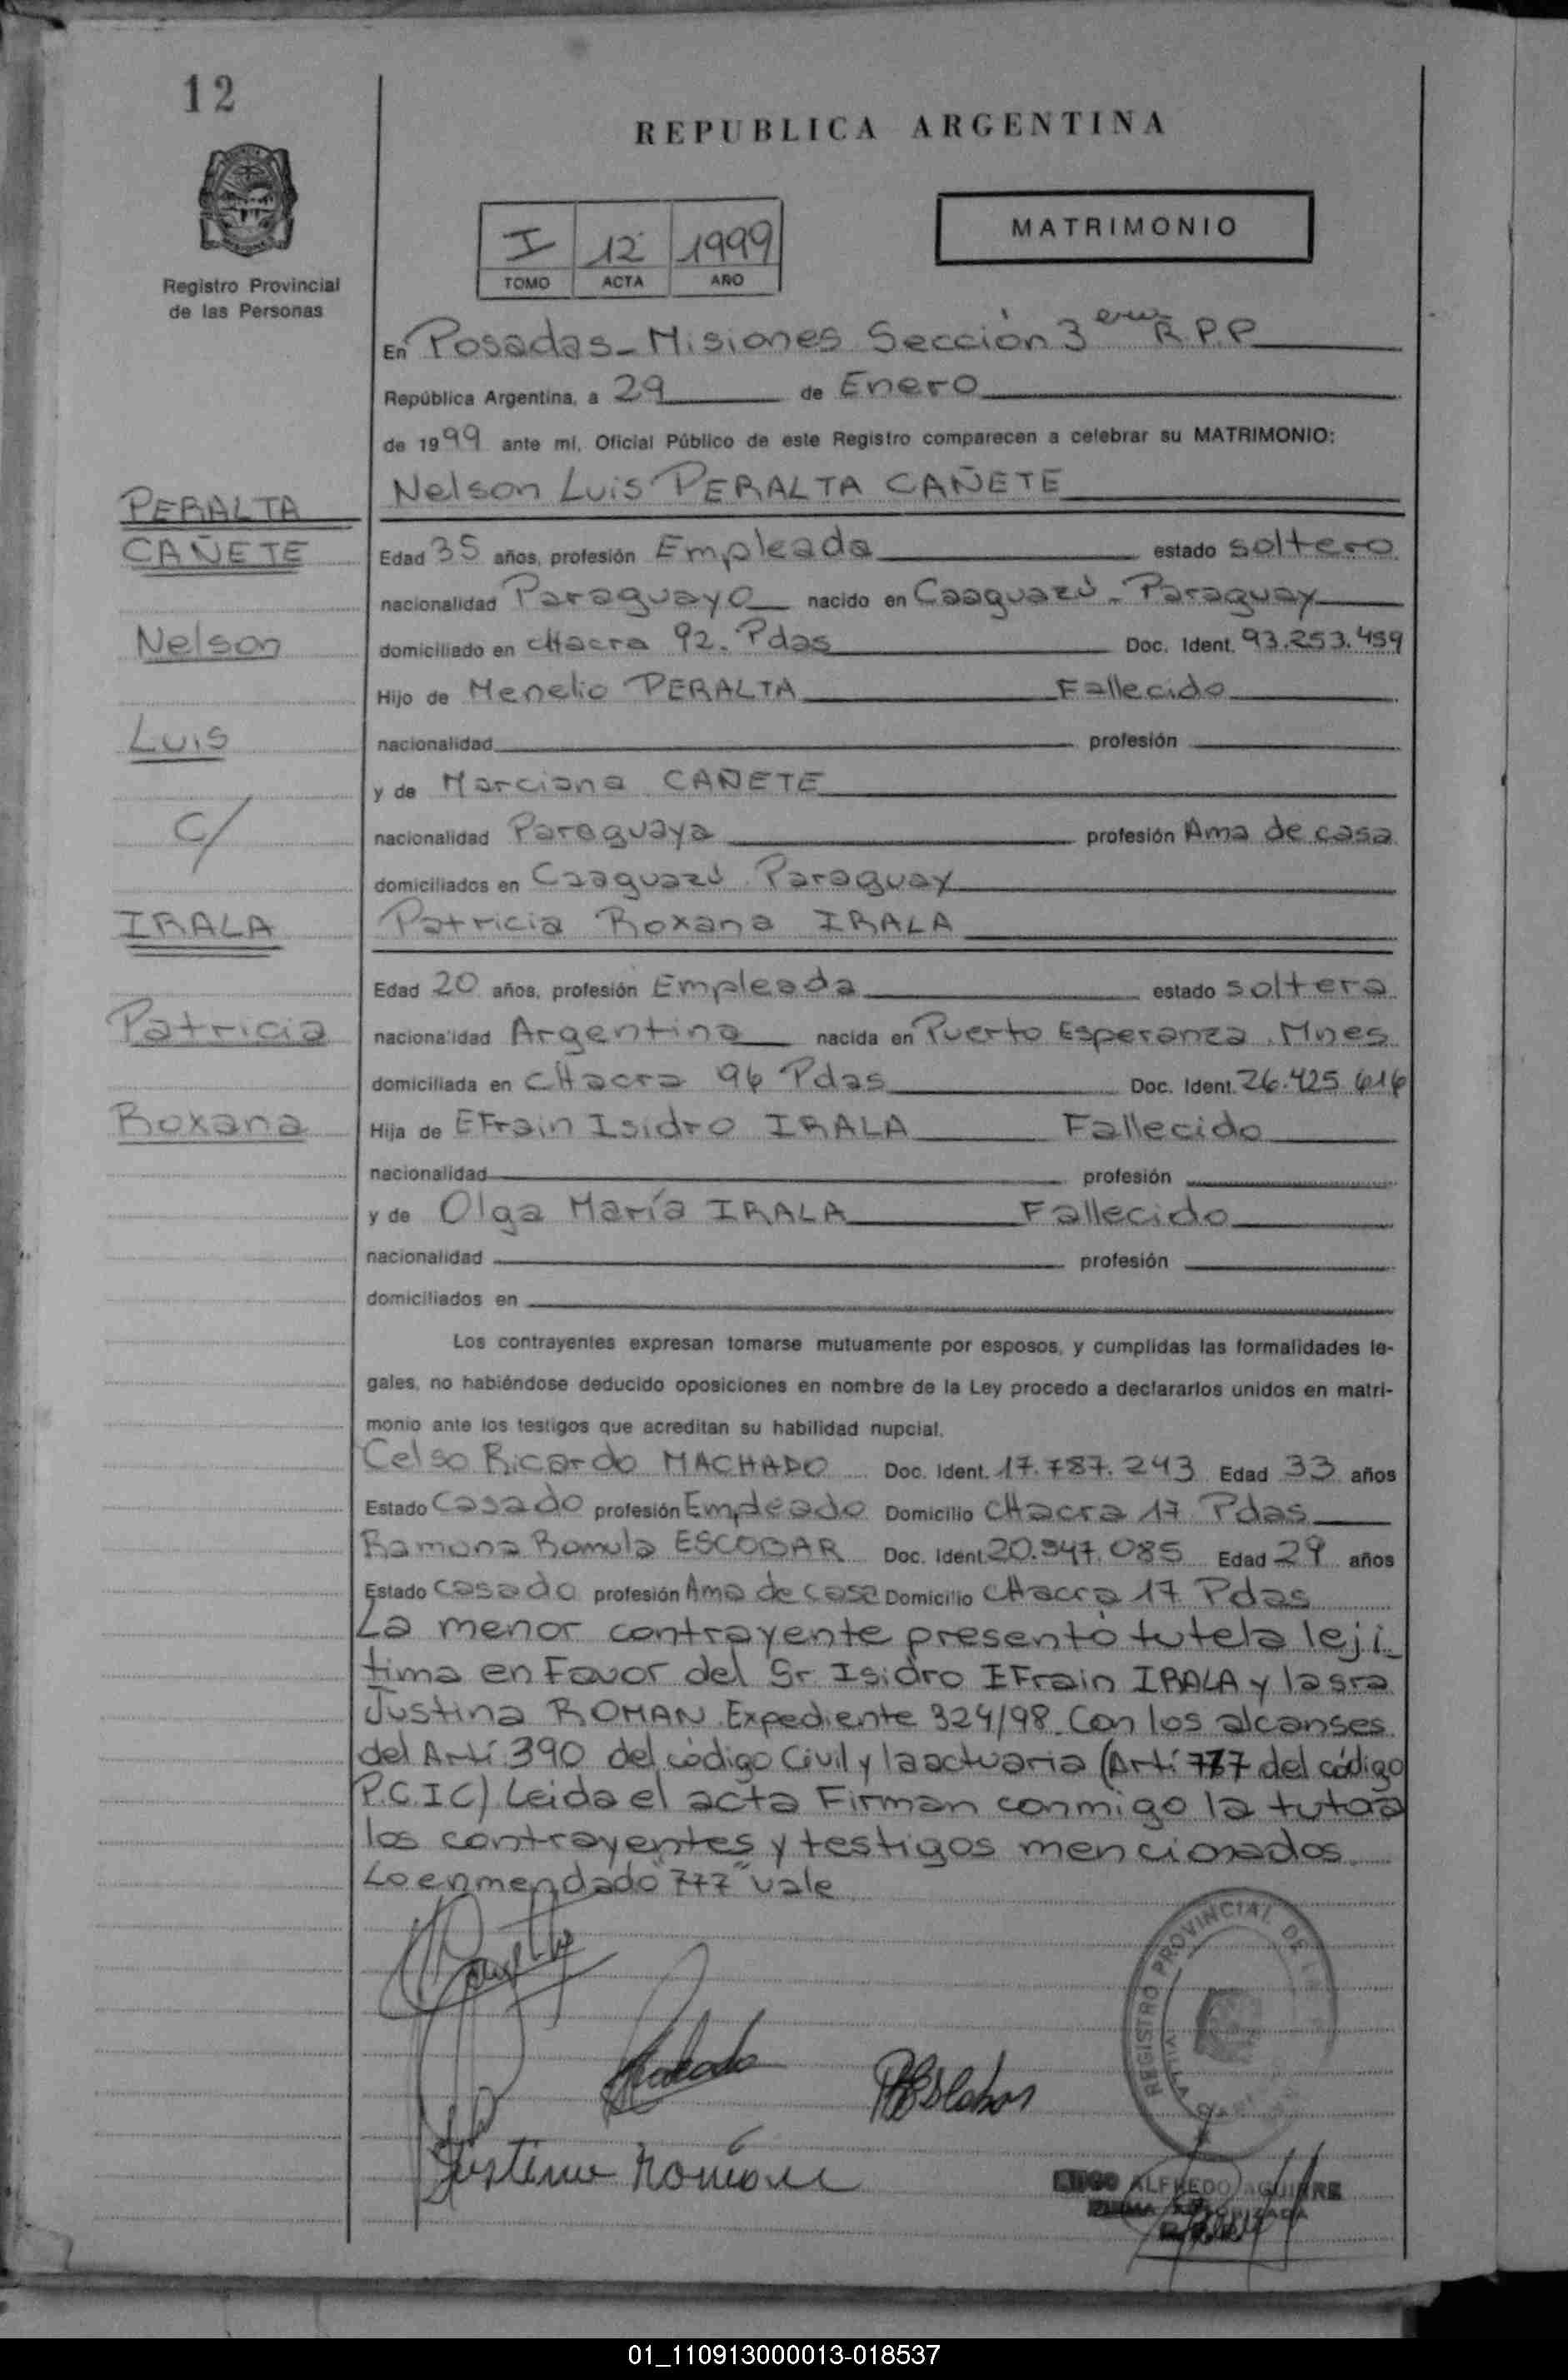 12
REPUBLICA ARGENTINA
Registro Provincial
de las Personas
I 12 1999
TOMO ACTA AÑO
MATRIMONIO
En Posadas - Misiones Sección 3 era R.P.P
República Argentina, a 29 de Enero
de 1999 ante mí, Oficial Público de este Registro comparecen a celebrar su MATRIMONIO:
PERALTA
CAÑETE
Nelson
Luis
C/
IRALA
Patricia
Roxana
Nelson Luis PERALTA CAÑETE
Edad 35 años, profesión Empleada estado soltero
nacionalidad Paraguayo nacido en Caaguazú - Paraguay
domiciliado en cHacra 92. Pdas Doc. Ident. 93.253.459
Hijo de Menelio PERALTA Fallecido
nacionalidad profesión
y de Marciana CAÑETE
nacionalidad Paraguaya profesión Ama de casa
domiciliados en Caaguazú. Paraguay
Patricia Roxana IRALA
Edad 20 años, profesión Empleada estado soltera
nacionalidad Argentina nacida en Puerto Esperanza. Mnes
domiciliada en cHacra 96 Pdas Doc. Ident. 26.425.616
Hija de EFrain Isidro IRALA Fallecido
nacionalidad profesión
y de Olga María IRALA Fallecido
nacionalidad profesión
domiciliados en
Los contrayentes expresan tomarse mutuamente por esposos, y cumplidas las formalidades le-
gales, no habiéndose deducido oposiciones en nombre de la Ley procedo a declararlos unidos en matri-
monio ante los testigos que acreditan su habilidad nupcial.
Celso Ricardo MACHADO Doc. Ident. 17.787.243 Edad 33 años
Estado Casado profesión Empleado Domicilio cHacra 17 Pdas
Ramona Romula ESCOBAR Doc. Ident. 20.947.085 Edad 29 años
Estado casada profesión Ama de casa Domicilio cHacra 17 Pdas
La menor contrayente presentó tutela leji_
tima en Favor del Sr Isidro EFrain IRALA y la sra
Justina ROMAN. Expediente 324/98. Con los alcanses
del Artí 390 del código Civil y la actuaria (Artí 777 del código
P.C.IC) Leida el acta Firman conmigo la tutora
los contrayentes y testigos mencionados.
Lo enmendado "777" vale
REGISTRO PROVINCIAL DE
ALFREDO AGUIRRE